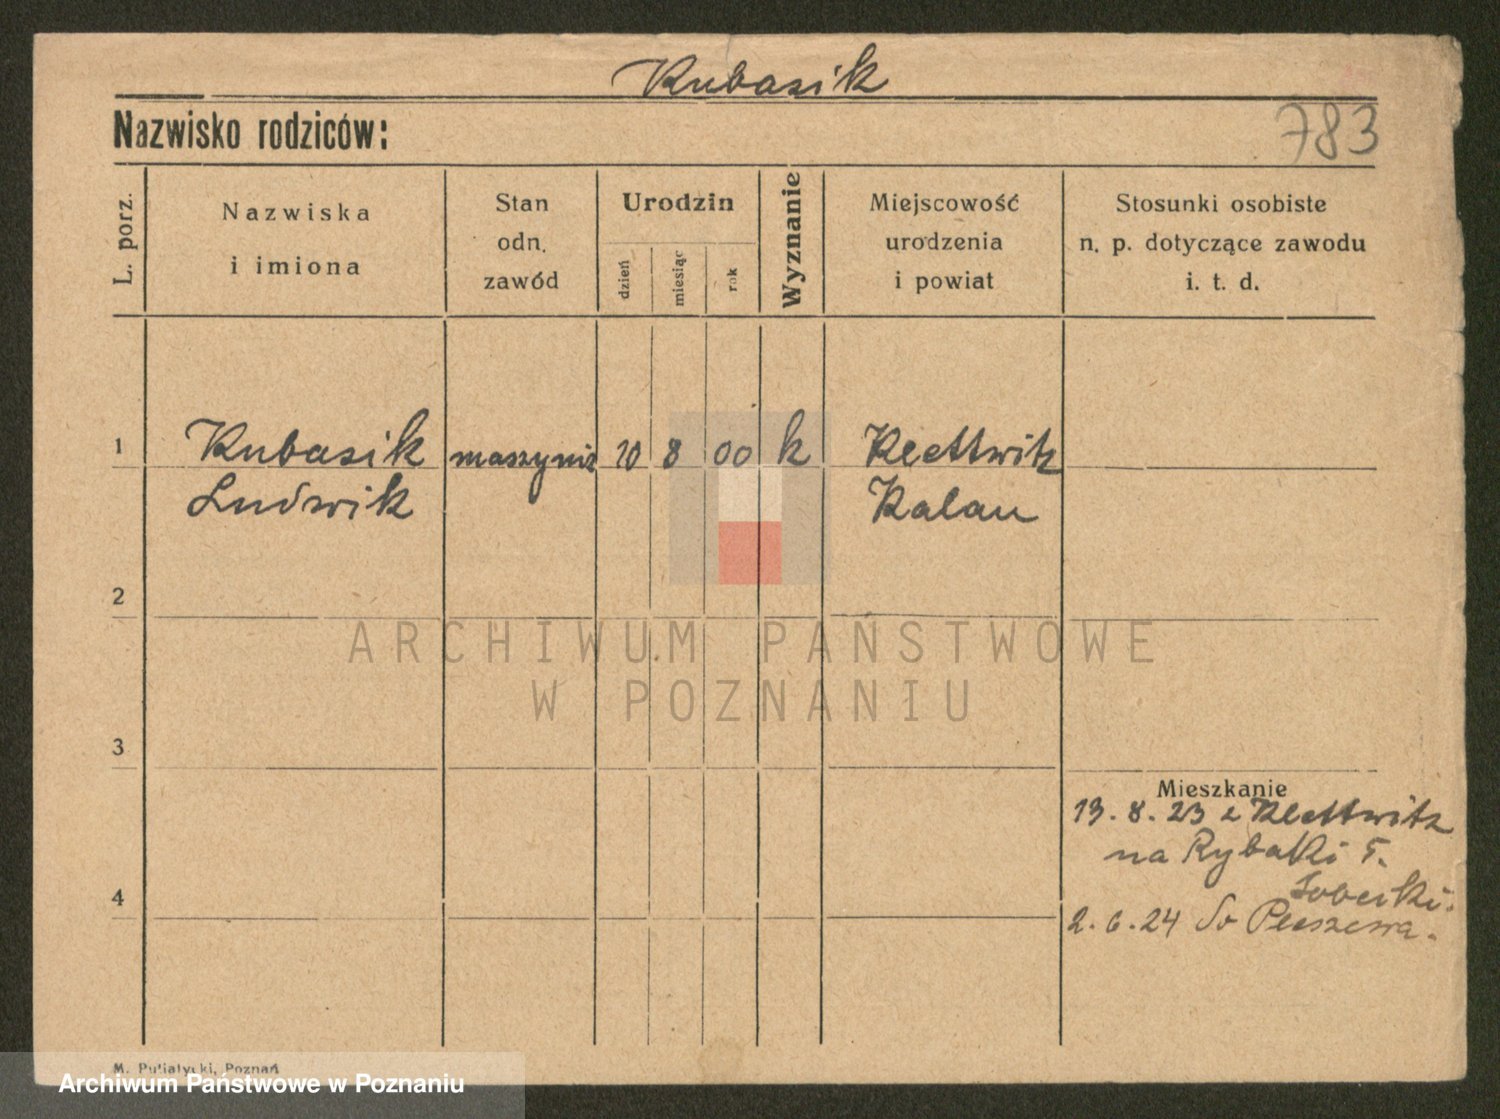 Kubasik
Nazwisko rodziców:
783
L. porz.
Nazwiska
i imiona
Stan
odn.
zawód
Urodzin
dzień
miesiąc
rok
Wyznanie
Miejscowość
urodzenia
i powiat
Stosunki osobiste
n. p. dotyczące zawodu
i. t. d.
1
Kubasik
maszynis
10
8
00
k
Klettwitz
Ludwik
Kalau
2
ARCHIWUM PAŃSTWOWE
W POZNANIU
3
Mieszkanie
13. 8. 23 z Klettwitz
na Rybaki 5.
4
2. 6. 24 do Pleszewa.
M. Putiatycki, Poznań
Archiwum Państwowe w Poznaniu